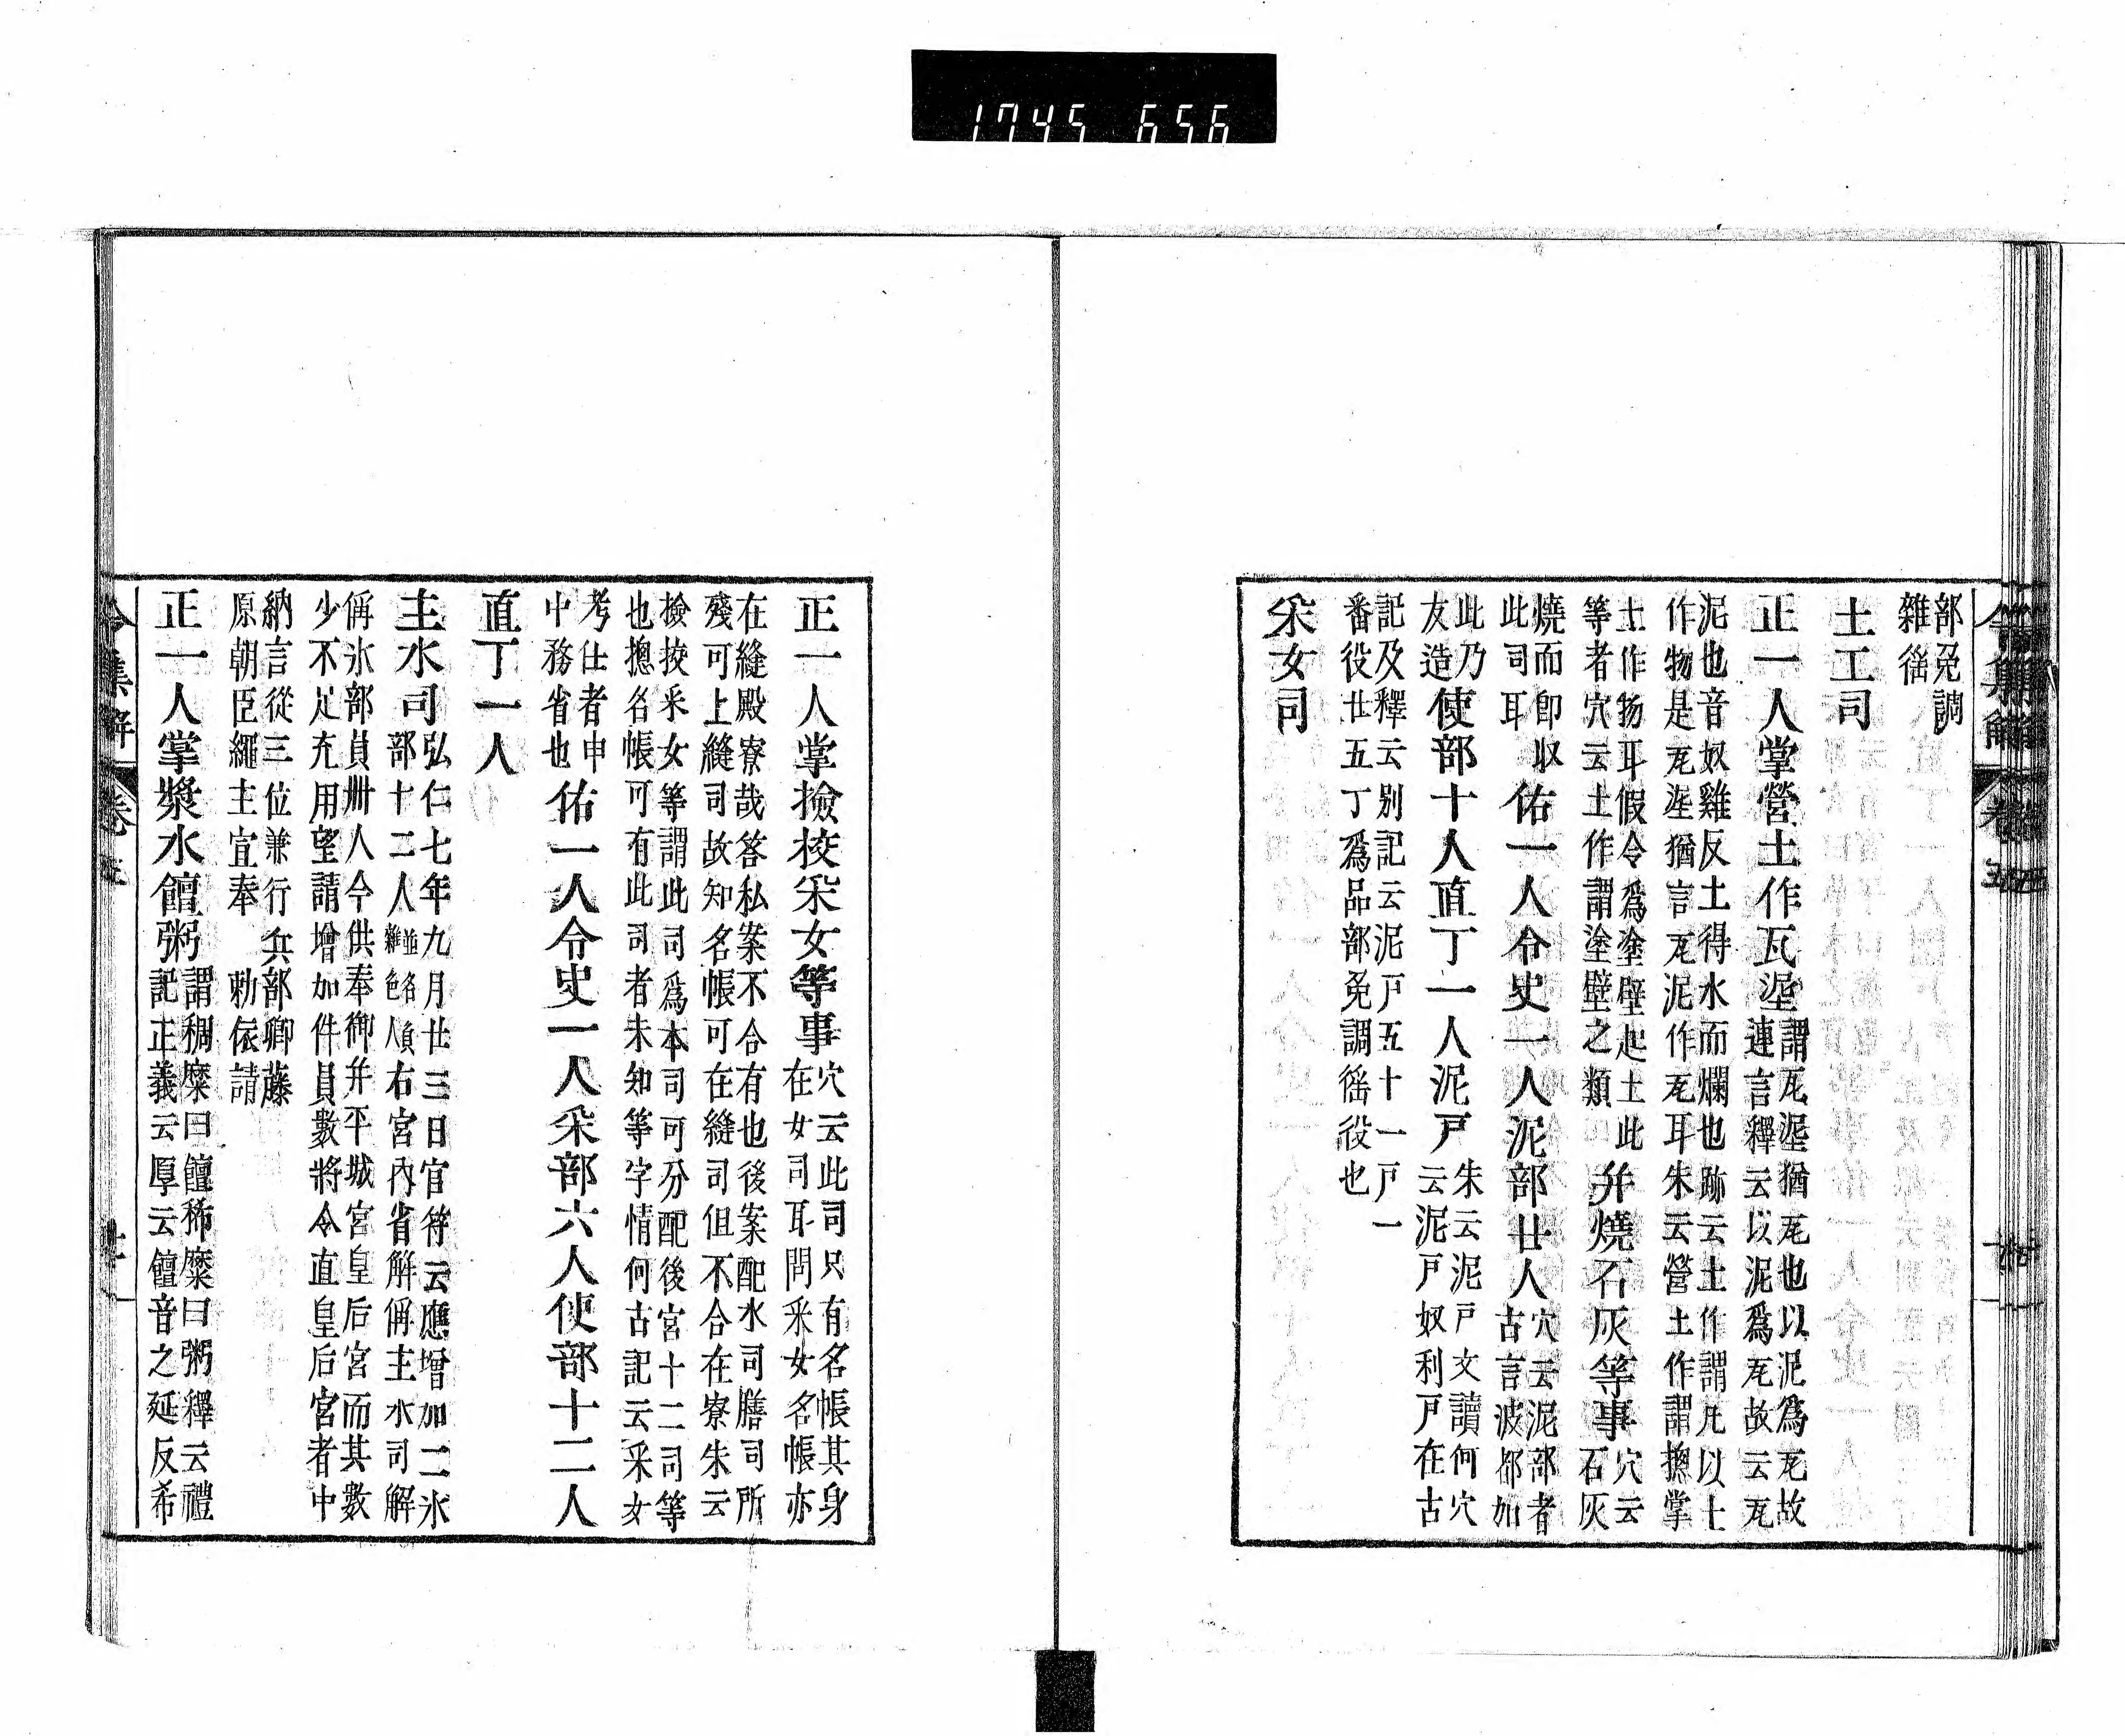 1745 656
部免調
雜徭
土工司
正一人掌營土作瓦埿
謂瓦埿猶瓦也以泥爲瓦故
連言釋云以泥爲瓦故云瓦
泥也音奴雞反土得水而爛也跡云土作謂凡以土
作物是瓦埿猶言瓦泥作瓦耳朱云營土作謂摠掌
土作物耳假令爲塗壁起土此
等者穴云土作謂塗壁之類
并燒石灰等事
穴云
石灰
燒而即収
此司耳
佑一人令史一人泥部廿人
穴云泥部者
古言波都加
此乃
友造
使部十人直丁一人泥戸
朱云泥戸文讀何穴
云泥戸奴利戸在古
記及釋云别記云泥戸五十一戸一
番役廿五丁爲品部免調徭役也
采女司
正一人掌撿校采女等事
穴云此司只有名帳其身
在女司耳問采女名帳亦
在縫殿寮哉答私案不合有也後案配水司膳司所
殘可上縫司故知名帳可在縫司但不合在寮朱云
撿挍采女等謂此司爲本司可分配後宮十二司等
也摠名帳可有此司者未知等字情何古記云采女
考仕者申
中務省也
佑一人令史一人采部六人使部十二人
直丁一人
主水司
弘仁七年九月廿三日官符云應增加二氷
部十二人
並各員
雜色人
右宮內省解偁主水司解
偁氷部員卌人今供奉御并平城宮皇后宮而其數
少不足充用望請增加件員數將令直皇后宮者中
納言從三位兼行兵部卿藤
原朝臣繩主宣奉　勅依請
正一人掌漿水饘粥
謂稠糜曰饘稀糜曰粥釋云禮
記正義云厚云饘音之延反希